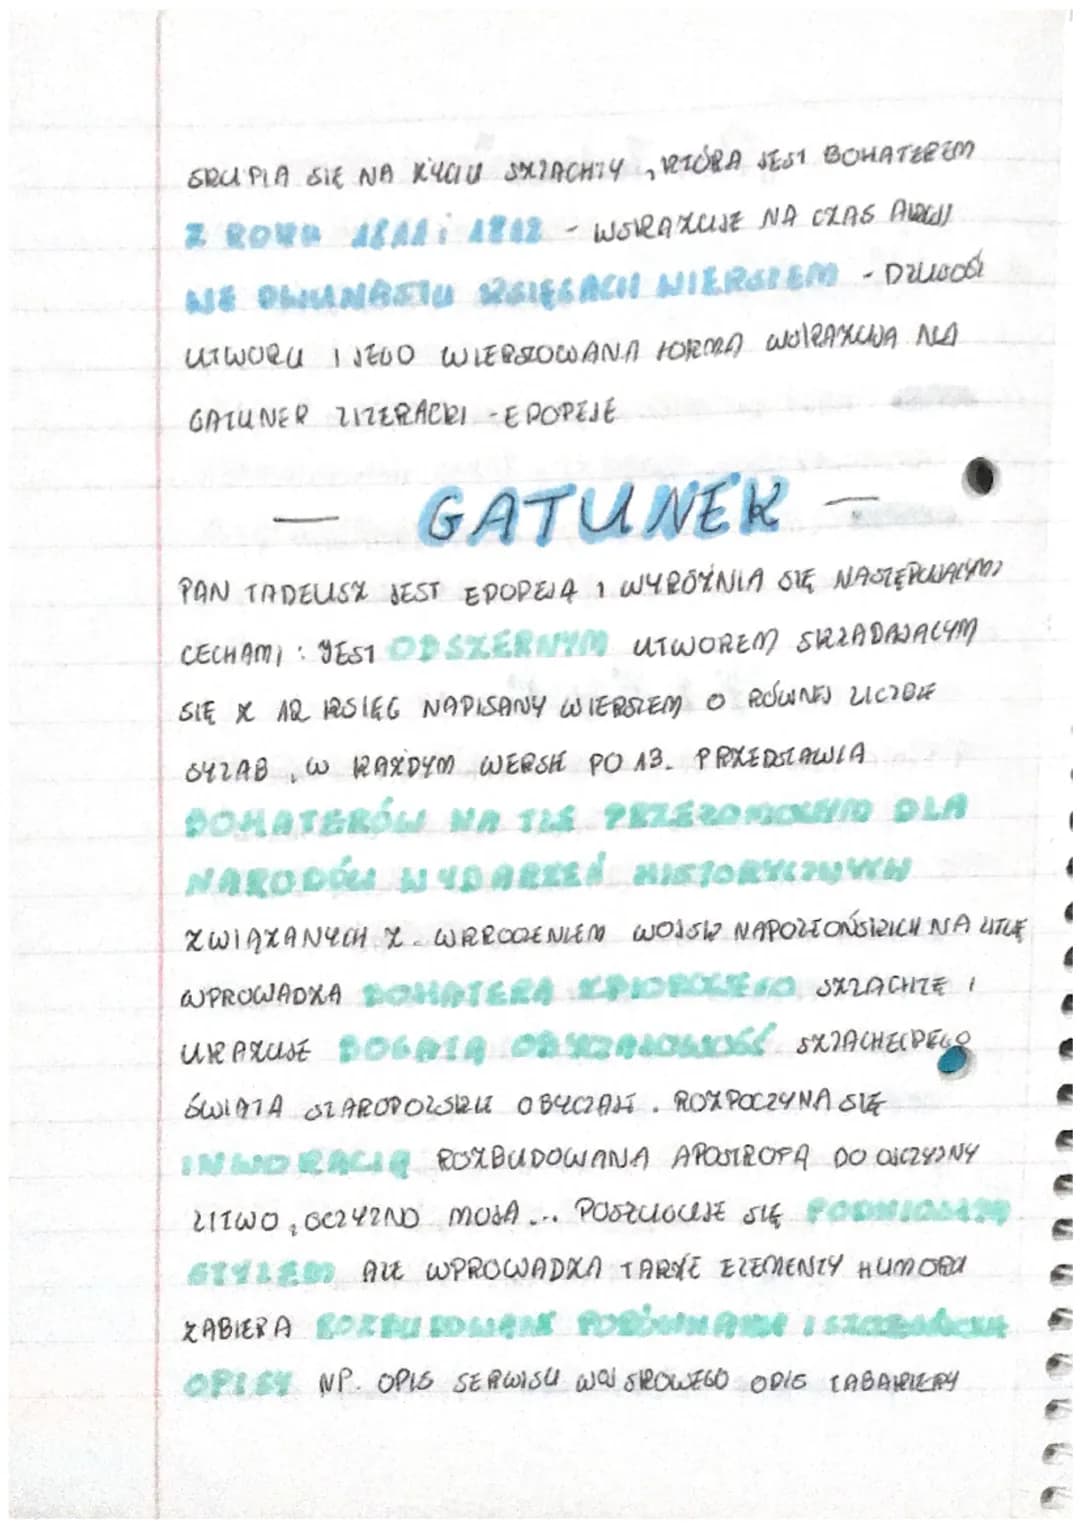 SKUPIA SIĘ NA ŻYCIU SZLACHTY, KTÓRA JEST BOHATEREM
Z ROKU 1811 i 1812 - WSKAZUJE NA CZAS AKCJI
WE DWUNASTU KSIĘGACH WIERSZEM - DŁUGOŚĆ
UTWORU I JEGO WIERSZOWANA FORMA WSKAZUJĄ NA
GATUNEK LITERACKI - EPOPEJĘ
— GATUNEK —
PAN TADEUSZ JEST EPOPEJĄ I WYRÓŻNIA SIĘ NASTĘPUJĄCYMI
CECHAMI: JEST OBSZERNYM UTWOREM SKŁADAJĄCYM
SIĘ Z 12 KSIĘG NAPISANY WIERSZEM O RÓWNEJ LICZBIE
SYLAB, W KAŻDYM WERSIE PO 13. PRZEDSTAWIA
BOHATERÓW NA TLE PRZEŁOMOWYM DLA
NARODÓW WYDARZEŃ HISTORYCZNYCH
ZWIĄZANYCH Z WKROCZENIEM WOJSK NAPOLEOŃSKICH NA LITWĘ
WPROWADZA BOHATERA ZBIOROWEGO SZLACHTĘ I
UKAZUJE BOGATĄ OBYCZAJOWOŚĆ SZLACHECKIEGO
ŚWIATA STAROPOLSKIE OBYCZAJE. ROZPOCZYNA SIĘ
INWOKACJĄ ROZBUDOWANA APOSTROFA DO OJCZYZNY
LITWO, OCZYZNO MOJA... POSŁUGUJE SIĘ PODNIOSŁYM
STYLEM ALE WPROWADZA TAKŻE ELEMENTY HUMORU
ZABIERA ROZBUDOWANE PORÓWNANIA I SZCZEGÓŁOWE
OPISY NP. OPIS SERWISU WOJSKOWEGO OPIS TABAKIERY